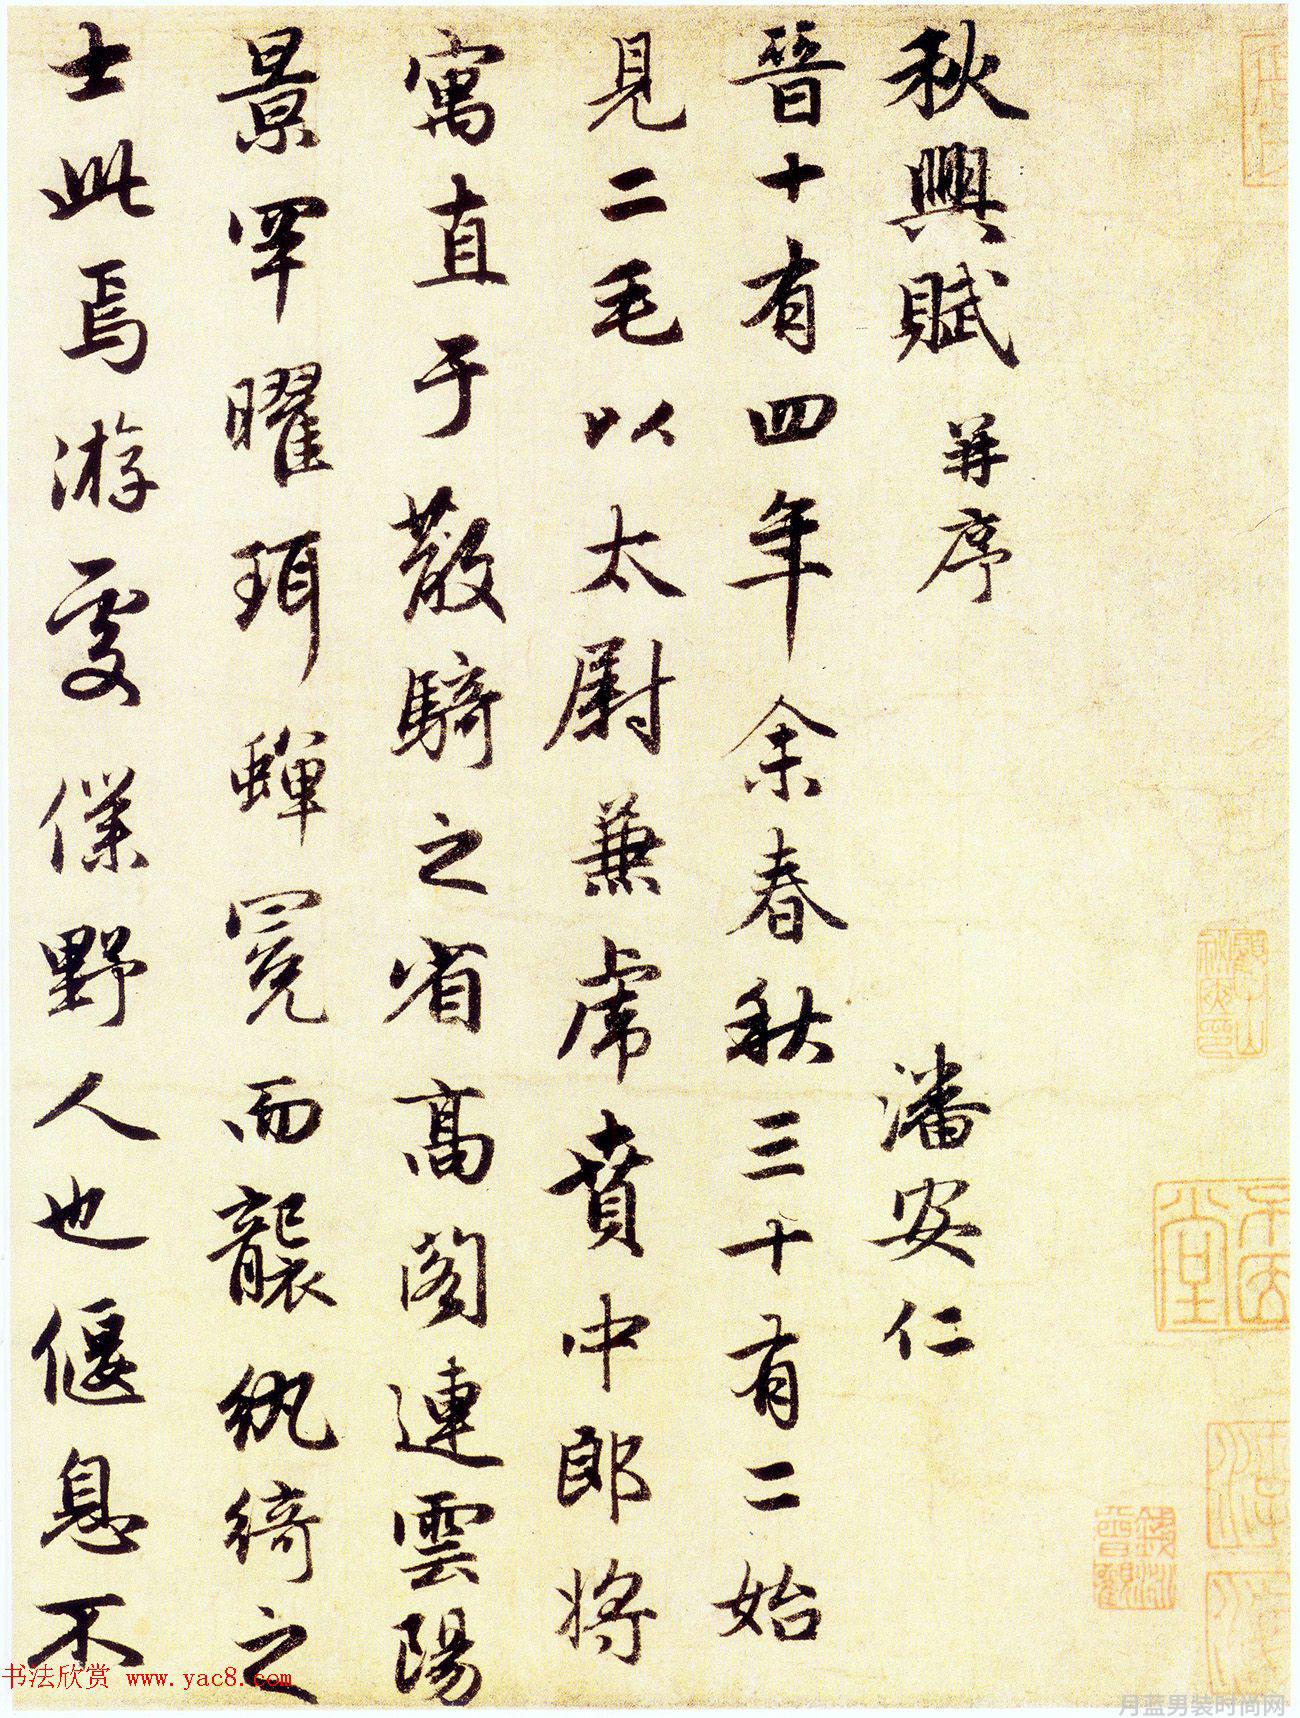 秋興賦 并序 潘安仁
晉十有四年余春秋三十有二始
見二毛以太尉兼虎賁中郎將
寓直于散騎之省高閣連雲陽
景罕曜珥蟬冕而襲紈綺之
士此焉游處僕野人也偃息不
书法欣赏 www.yac8.com
月蓝男装时尚网